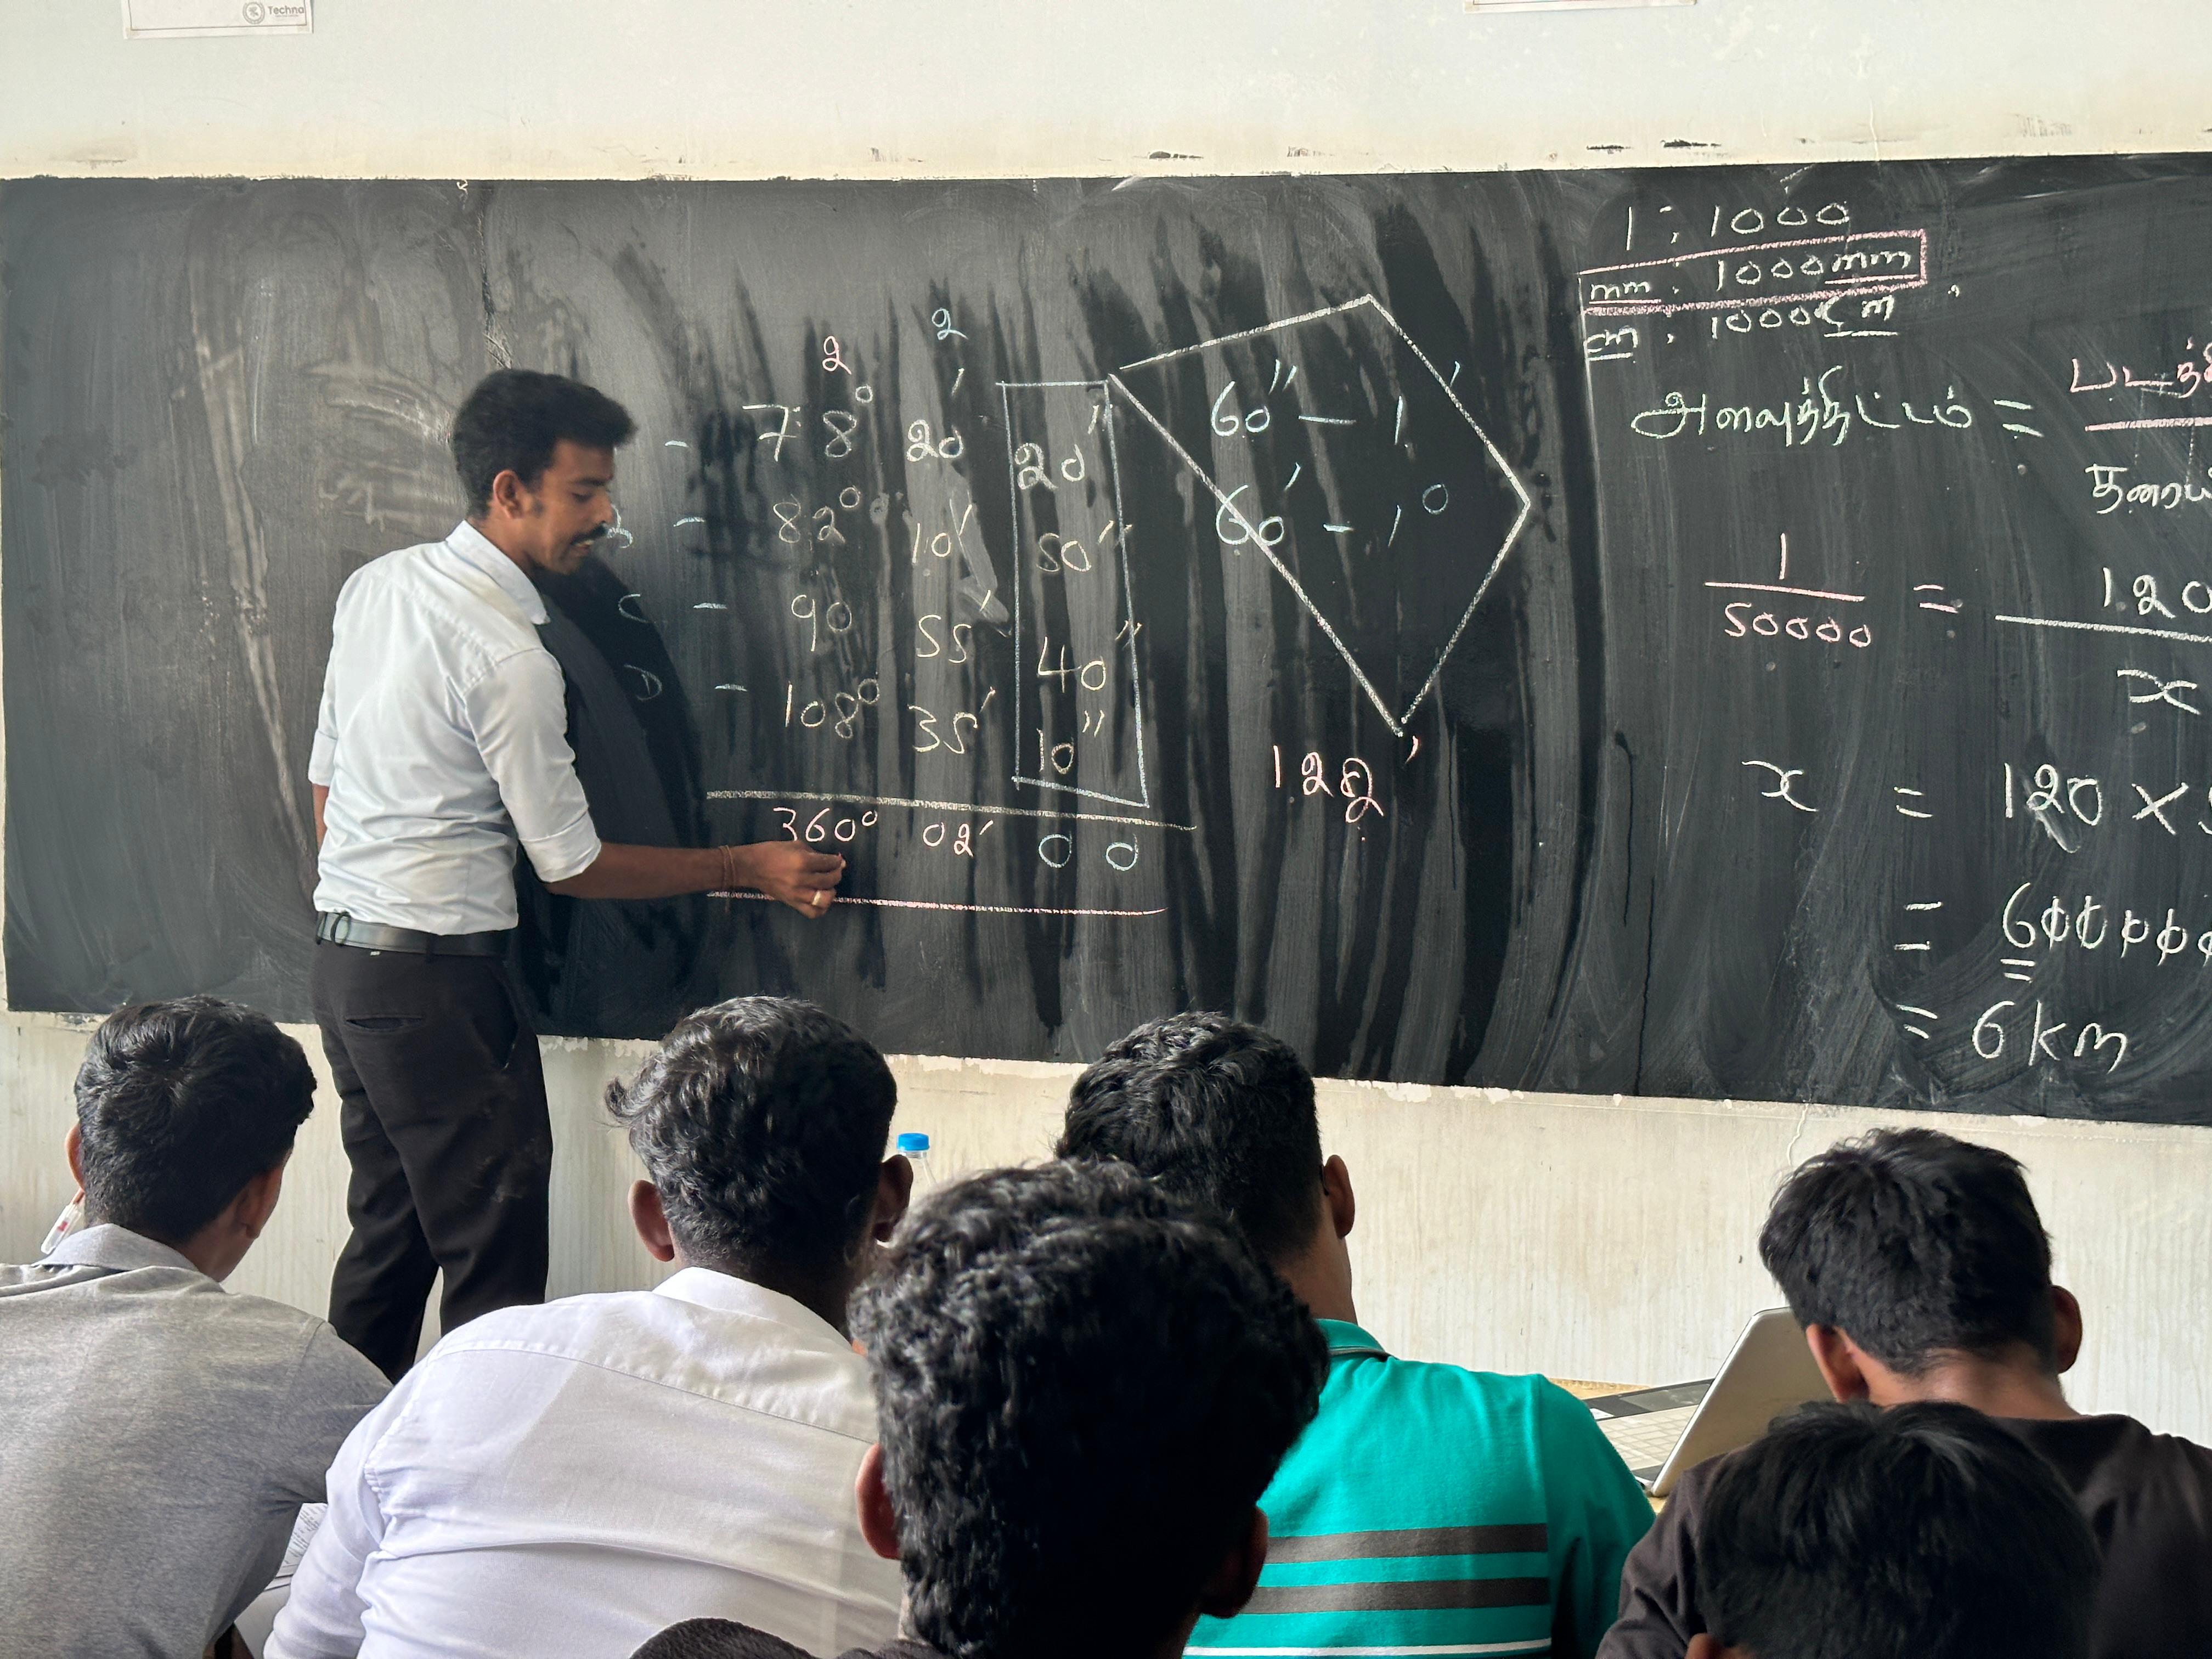 Techno
2 2
- 78° 20' 20"
B - 82° 10' 50"
C - 90 55' 40"
D - 108° 35' 10"
360° 02' 00
60" - 1'
60' - 1°
122'
1 : 1000
mm : 1000mm
cm : 1000cm
அளவுத்திட்டம் =
1/50000 = 120
x
x = 120 ×
= 600000
= 6km